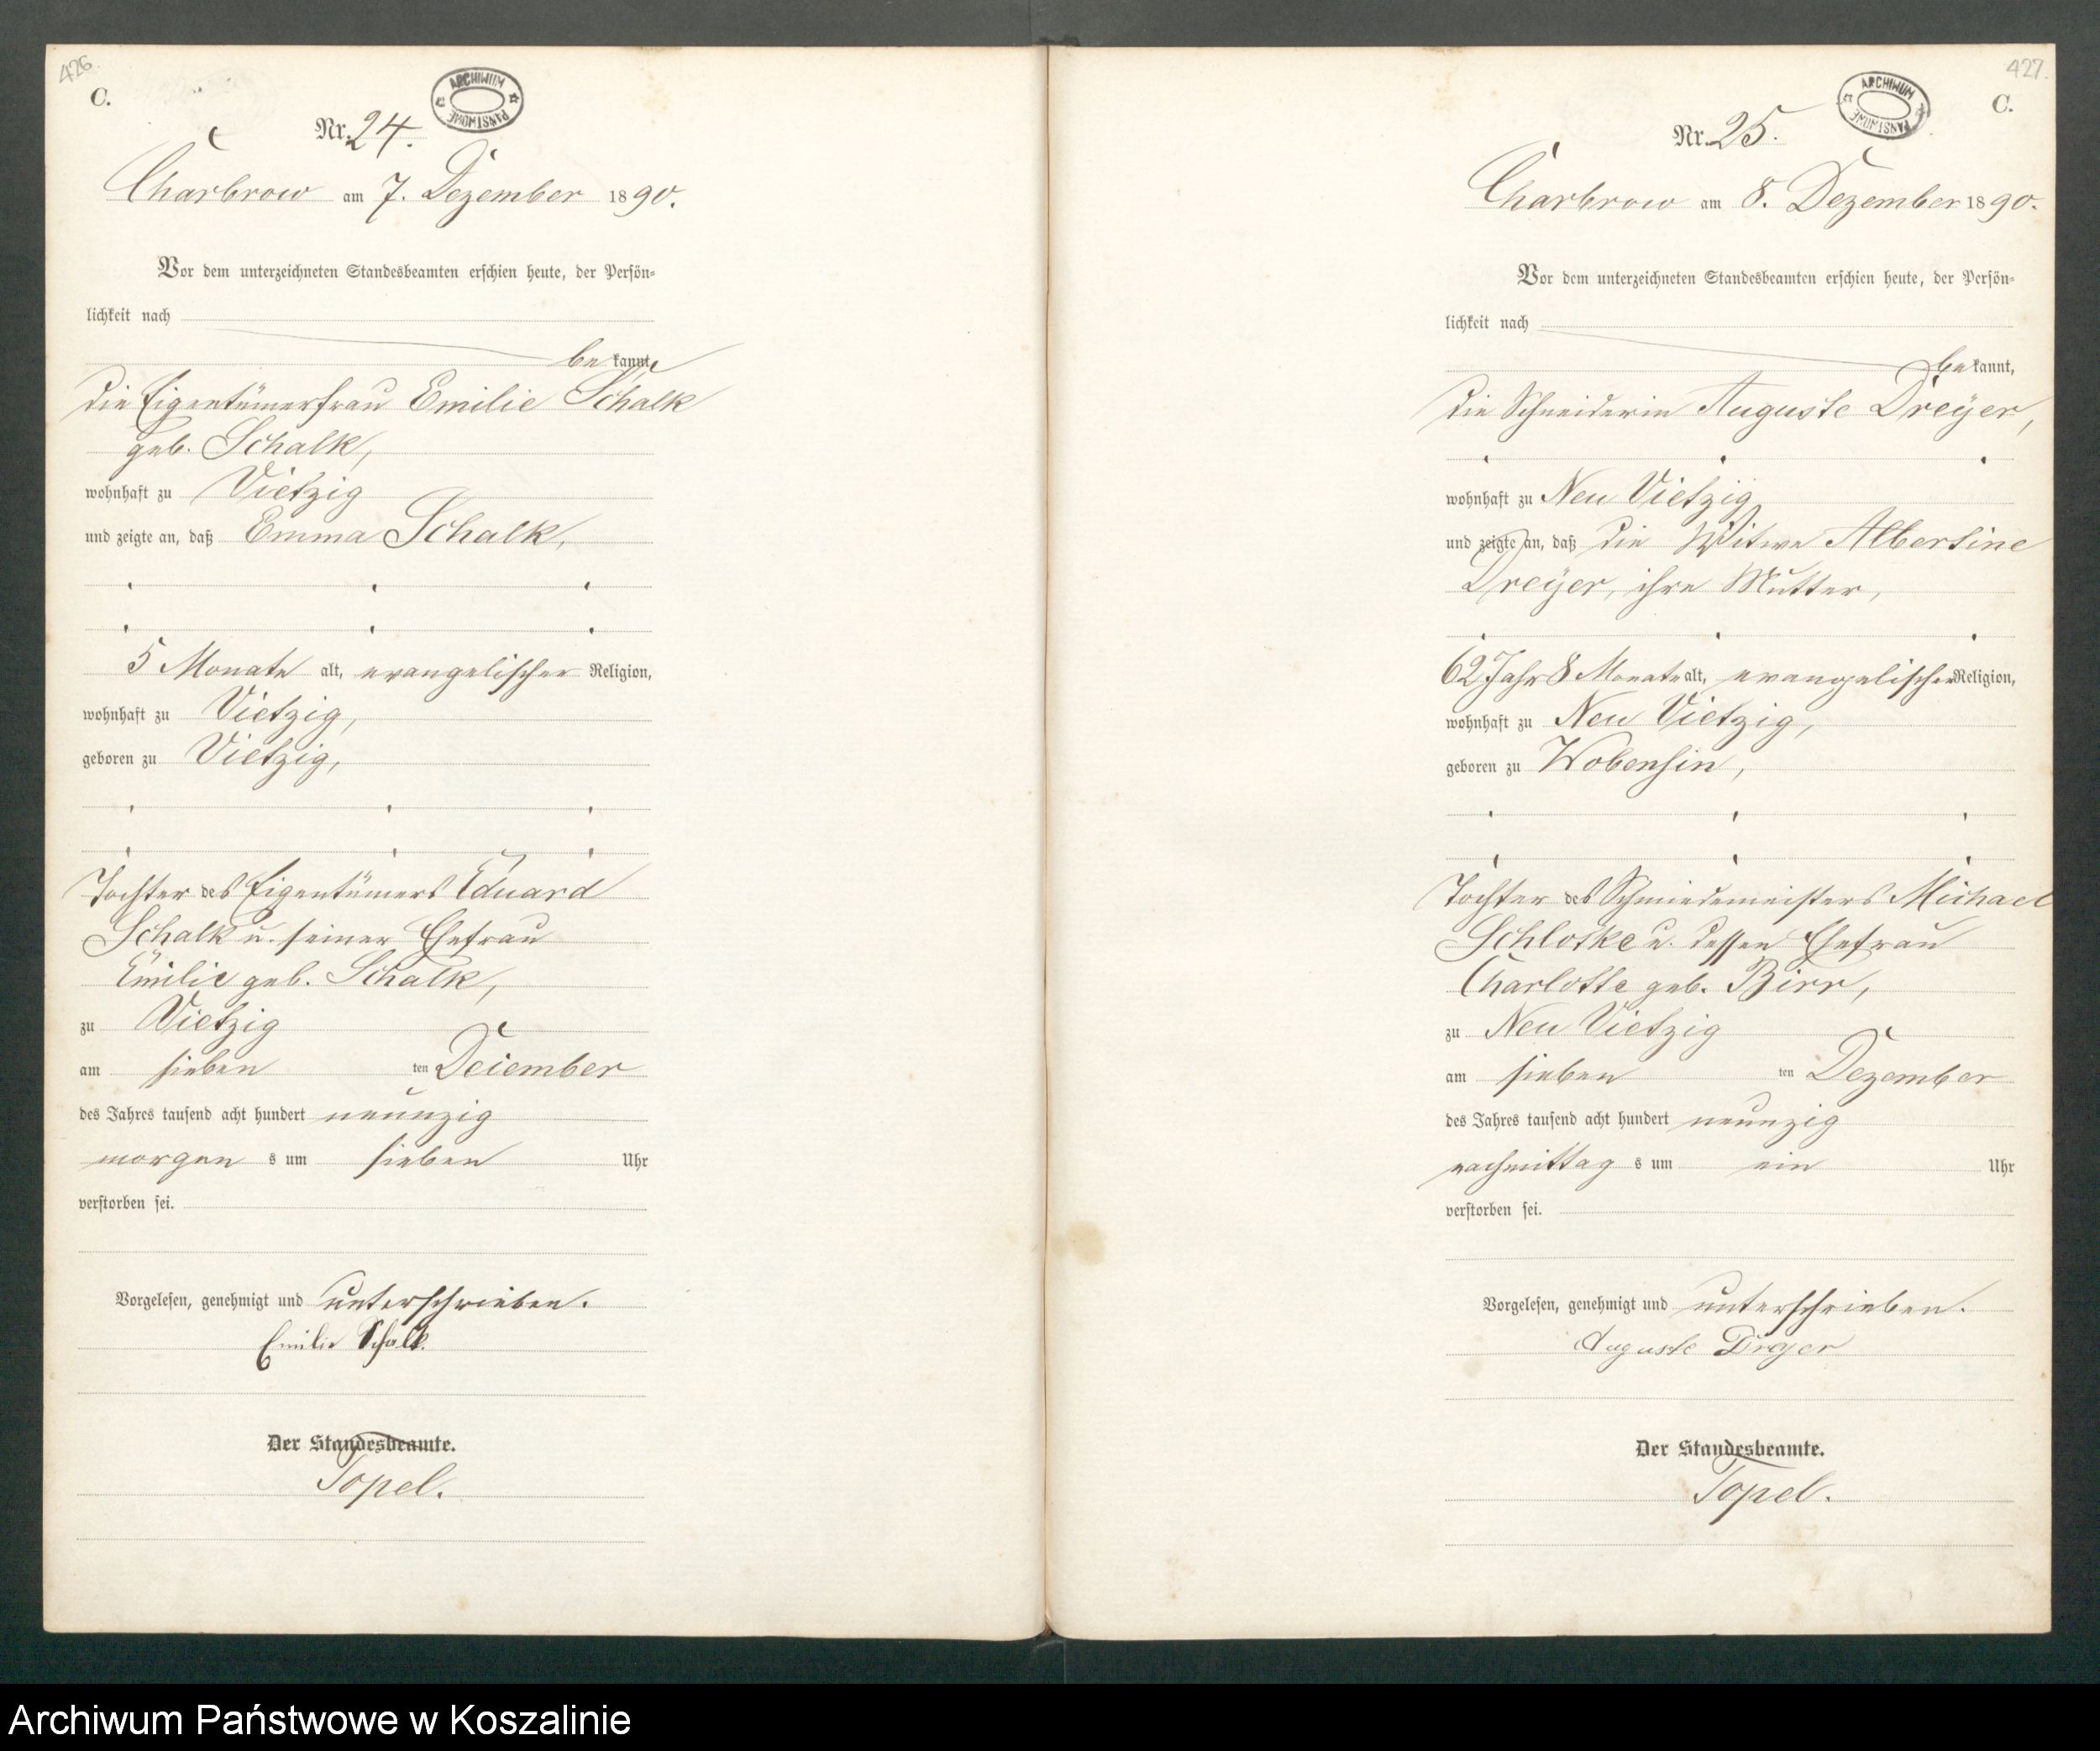 426.
C.
ARCHIWUM PAŃSTWOWE
Nr. 24.
Charbrow am 7. Dezember 1890.
Vor dem unterzeichneten Standesbeamten erschien heute, der Persön-
lichkeit nach
bekannt,
die Eigentümerfrau Emilie Schalk
geb. Schalk,
wohnhaft zu Vietzig
und zeigte an, daß Emma Schalk,
5 Monate alt, evangelischer Religion,
wohnhaft zu Vietzig,
geboren zu Vietzig,
Tochter des Eigentümers Eduard
Schalk u. seiner Ehefrau
Emilie geb. Schalk,
zu Vietzig
am sieben ten Dezember
des Jahres tausend acht hundert neunzig
morgens um sieben Uhr
verstorben sei.
Vorgelesen, genehmigt und unterschrieben.
Emilie Schalk.
Der Standesbeamte.
Topel.
427.
C.
ARCHIWUM PAŃSTWOWE
Nr. 25.
Charbrow am 8. Dezember 1890.
Vor dem unterzeichneten Standesbeamten erschien heute, der Persön-
lichkeit nach
bekannt,
die Schneiderin Auguste Dreÿer,
wohnhaft zu Neu Vietzig
und zeigte an, daß die Witwe Albertine
Dreÿer, ihre Mutter,
62 Jahr 8 Monate alt, evangelischer Religion,
wohnhaft zu Neu Vietzig,
geboren zu Wobensin,
Tochter des Schmiedemeisters Michael
Schloske u. dessen Ehefrau
Charlotte geb. Birr,
zu Neu Vietzig
am sieben ten Dezember
des Jahres tausend acht hundert neunzig
nachmittags um ein Uhr
verstorben sei.
Vorgelesen, genehmigt und unterschrieben.
Auguste Dreyer
Der Standesbeamte.
Topel.
Archiwum Państwowe w Koszalinie